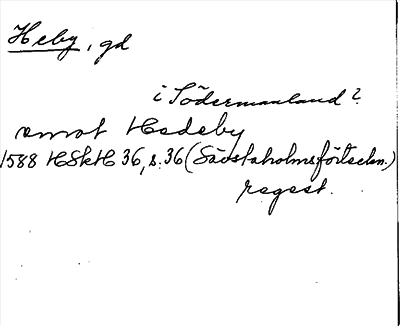 Heby, gd
i Södermanland?
omot Hedeby
1588 HSkH 36, s. 36 (Sävstaholmsförteckn.)
regest.